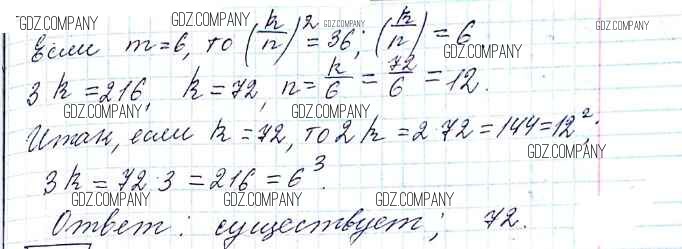 GDZ.COMPANY GDZ.COMPANY GDZ.COMPANY GDZ.COMPANY
Если m=6, то (k/n)² = 36; (k/n) = 6
GDZ.COMPANY
3k = 216, k = 72, n = k/6 = 72/6 = 12.
GDZ.COMPANY GDZ.COMPANY
Итак, если k = 72, то 2k = 2·72 = 144 = 12²;
GDZ.COMPANY
3k = 72·3 = 216 = 6³.
GDZ.COMPANY GDZ.COMPANY GDZ.COMPANY
Ответ: существует; 72.